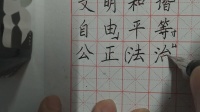 文明和谐
自由平等
公正法治